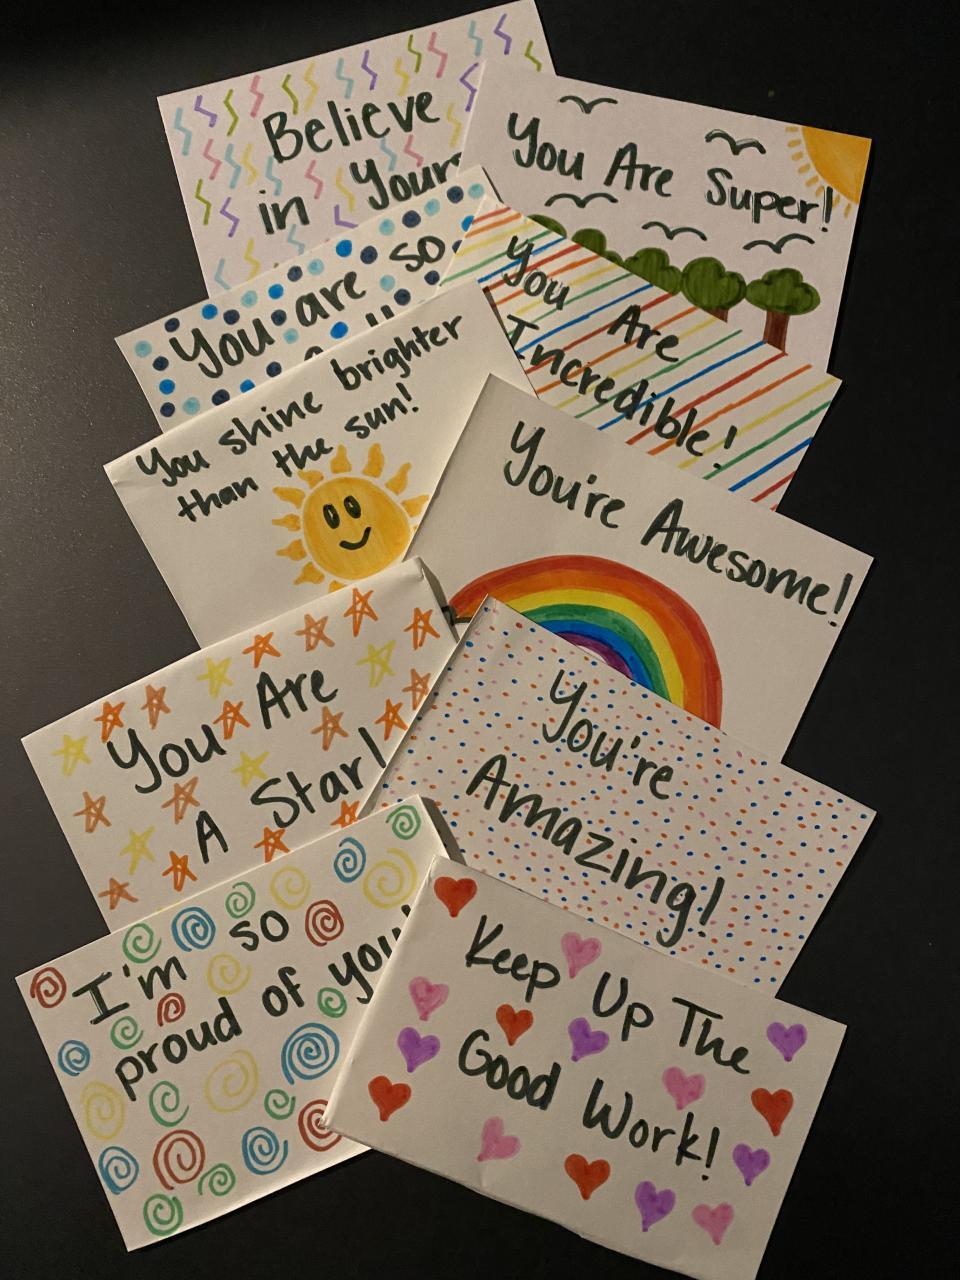 Believe
in Your
You Are Super!
You are so
You Are
Incredible!
You shine brighter
than the sun!
You're Awesome!
You Are
A Star!
You're
Amazing!
I'm so
proud of you!
Keep Up The
Good Work!